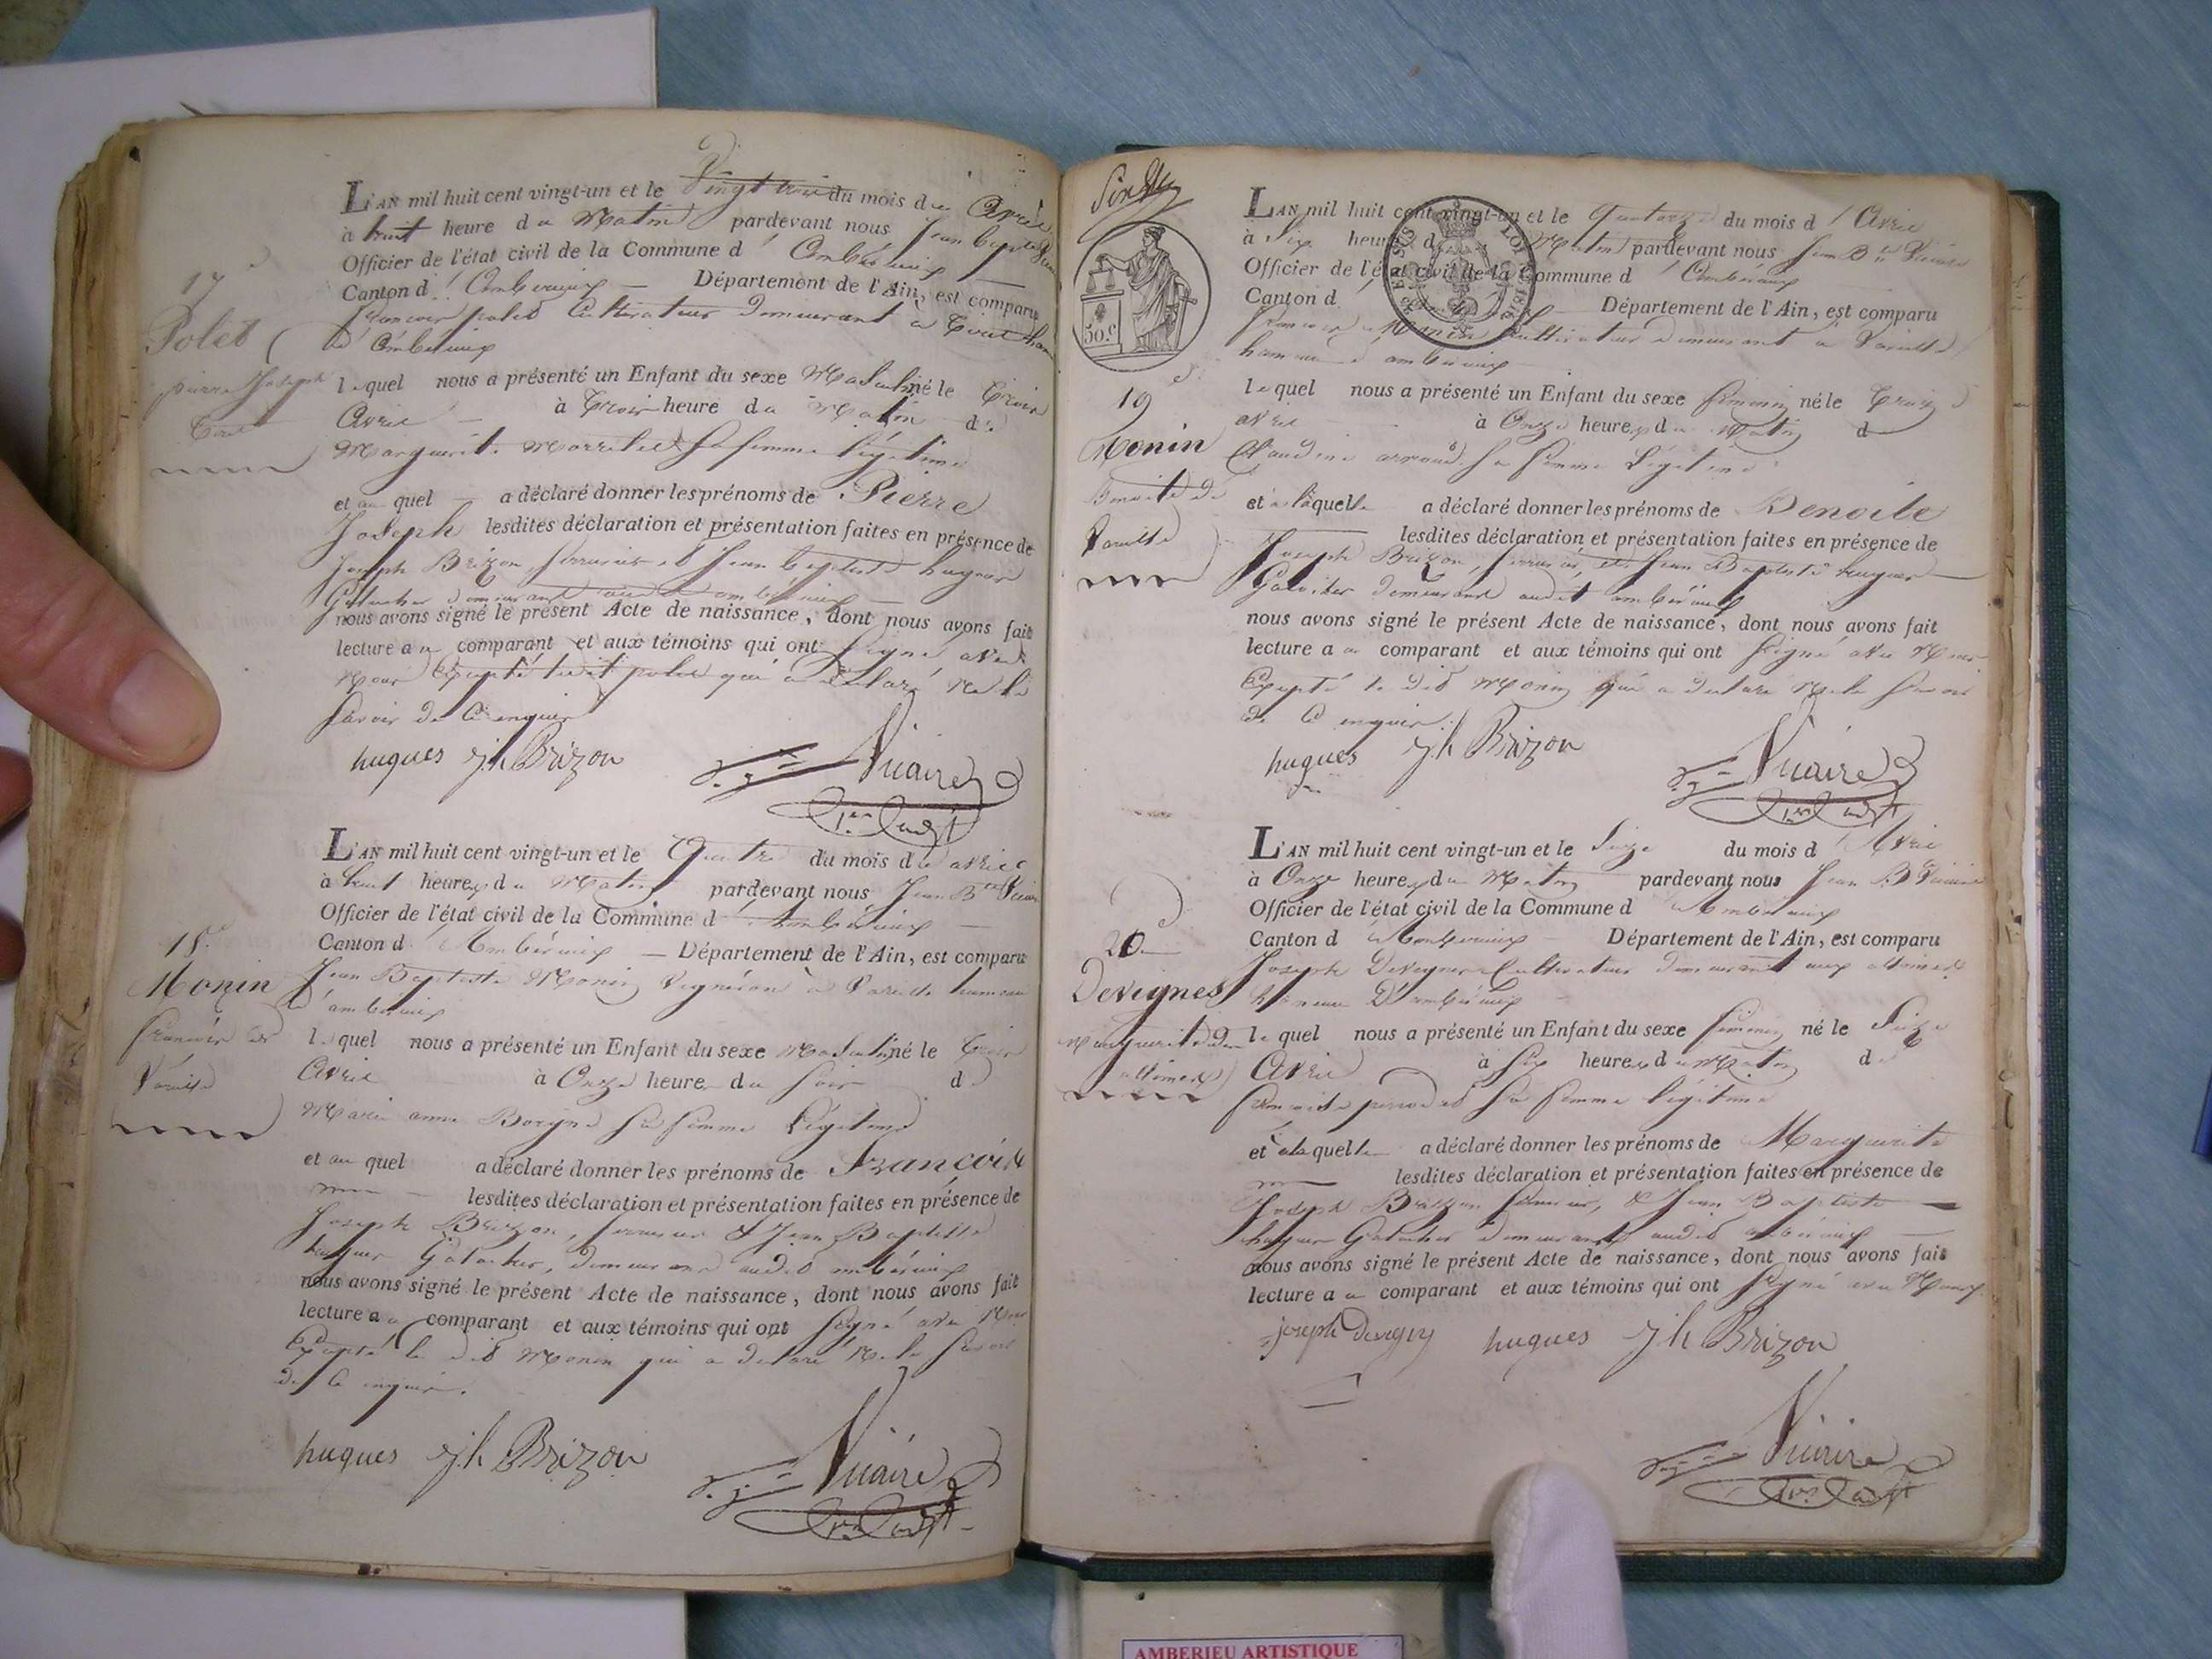 17e
Polet
pierre Joseph
L'AN mil huit cent vingt-un et le du mois de Avril
à huit heure du Matin pardevant nous Jean Baptiste
Officier de l'état civil de la Commune d'Ambérieux
Canton d'Amberieux Département de l'Ain, est comparu
françois polet Cultivateur demeurant à
d'Ambérieux
lequel nous a présenté un Enfant du sexe Masculin né le trois
Avril à trois heure du Matin de
Marguerite sa femme légitime
et au quel a déclaré donner les prénoms de Pierre
Joseph lesdites déclaration et présentation faites en présence de
Joseph Brizon, serrurier et Jean Baptiste hugues
demeurant audit ambérieux
nous avons signé le présent Acte de naissance, dont nous avons fait
lecture au comparant et aux témoins qui ont signé avec
Nous Excepté ledit polet qui a déclaré ne le
savoir de ce enquis
hugues jh Brizon Vicaire
18e
Monin
françois de
Vareille
L'AN mil huit cent vingt-un et le Quatre du mois de avril
à huit heures du Matin pardevant nous Jean Bte
Officier de l'état civil de la Commune d'Ambérieux
Canton d'Ambérieux Département de l'Ain, est comparu
Jean Baptiste Monin Vigneron à Vareille hameau
d'ambérieux
lequel nous a présenté un Enfant du sexe Masculin né le trois
Avril à Onze heure du soir de
Marie anne sa femme Légitime
et au quel a déclaré donner les prénoms de François
lesdites déclaration et présentation faites en présence de
Joseph Brizon, serrurier & Jean Baptiste
hugues demeurant audit ambérieux
nous avons signé le présent Acte de naissance, dont nous avons fait
lecture au comparant et aux témoins qui ont signé avec Nous
Excepté le dit Monin qui a déclaré Ne le savoir
de ce enquis.
hugues jh Brizon Vicaire
50.c
19e
Monin
Benoite de
Vareille
L'AN mil huit cent vingt-un et le Quatorze du mois d'Avril
à Six heures du Matin pardevant nous Jean Bte
Officier de l'état civil de la Commune d'Ambérieux
Canton d' Département de l'Ain, est comparu
François Monin Cultivateur demeurant à Vareille
hameau d'ambérieux
lequel nous a présenté un Enfant du sexe féminin né le treize
avril à Onze heures du Matin d
Claudine sa femme Légitime
et à laquelle a déclaré donner les prénoms de Benoite
lesdites déclaration et présentation faites en présence de
Joseph Brizon, serrurier, et Jean Baptiste hugues
demeurant audit ambérieux
nous avons signé le présent Acte de naissance, dont nous avons fait
lecture au comparant et aux témoins qui ont signé avec Nous
Excepté le dit Monin qui a déclaré Ne le savoir
de ce enquis.
hugues jh Brizon Vicaire
20e
Devignes
marguerite
L'AN mil huit cent vingt-un et le Seize du mois d'Avril
à Onze heures du Matin pardevant nous Jean B
Officier de l'état civil de la Commune d'Ambérieux
Canton d'Ambérieux Département de l'Ain, est comparu
Joseph Devignes Cultivateur demeurant aux
hameau D'ambérieux
lequel nous a présenté un Enfant du sexe féminin né le Seize
Avril à Six heures du Matin de
sa femme légitime
et à laquelle a déclaré donner les prénoms de Marguerite
lesdites déclaration et présentation faites en présence de
Joseph Brizon serrurier, & Jean Baptiste
hugues demeurant audit ambérieux
nous avons signé le présent Acte de naissance, dont nous avons fait
lecture au comparant et aux témoins qui ont signé avec Nous
joseph hugues jh Brizon
Vicaire
AMBERIEU ARTISTIQUE